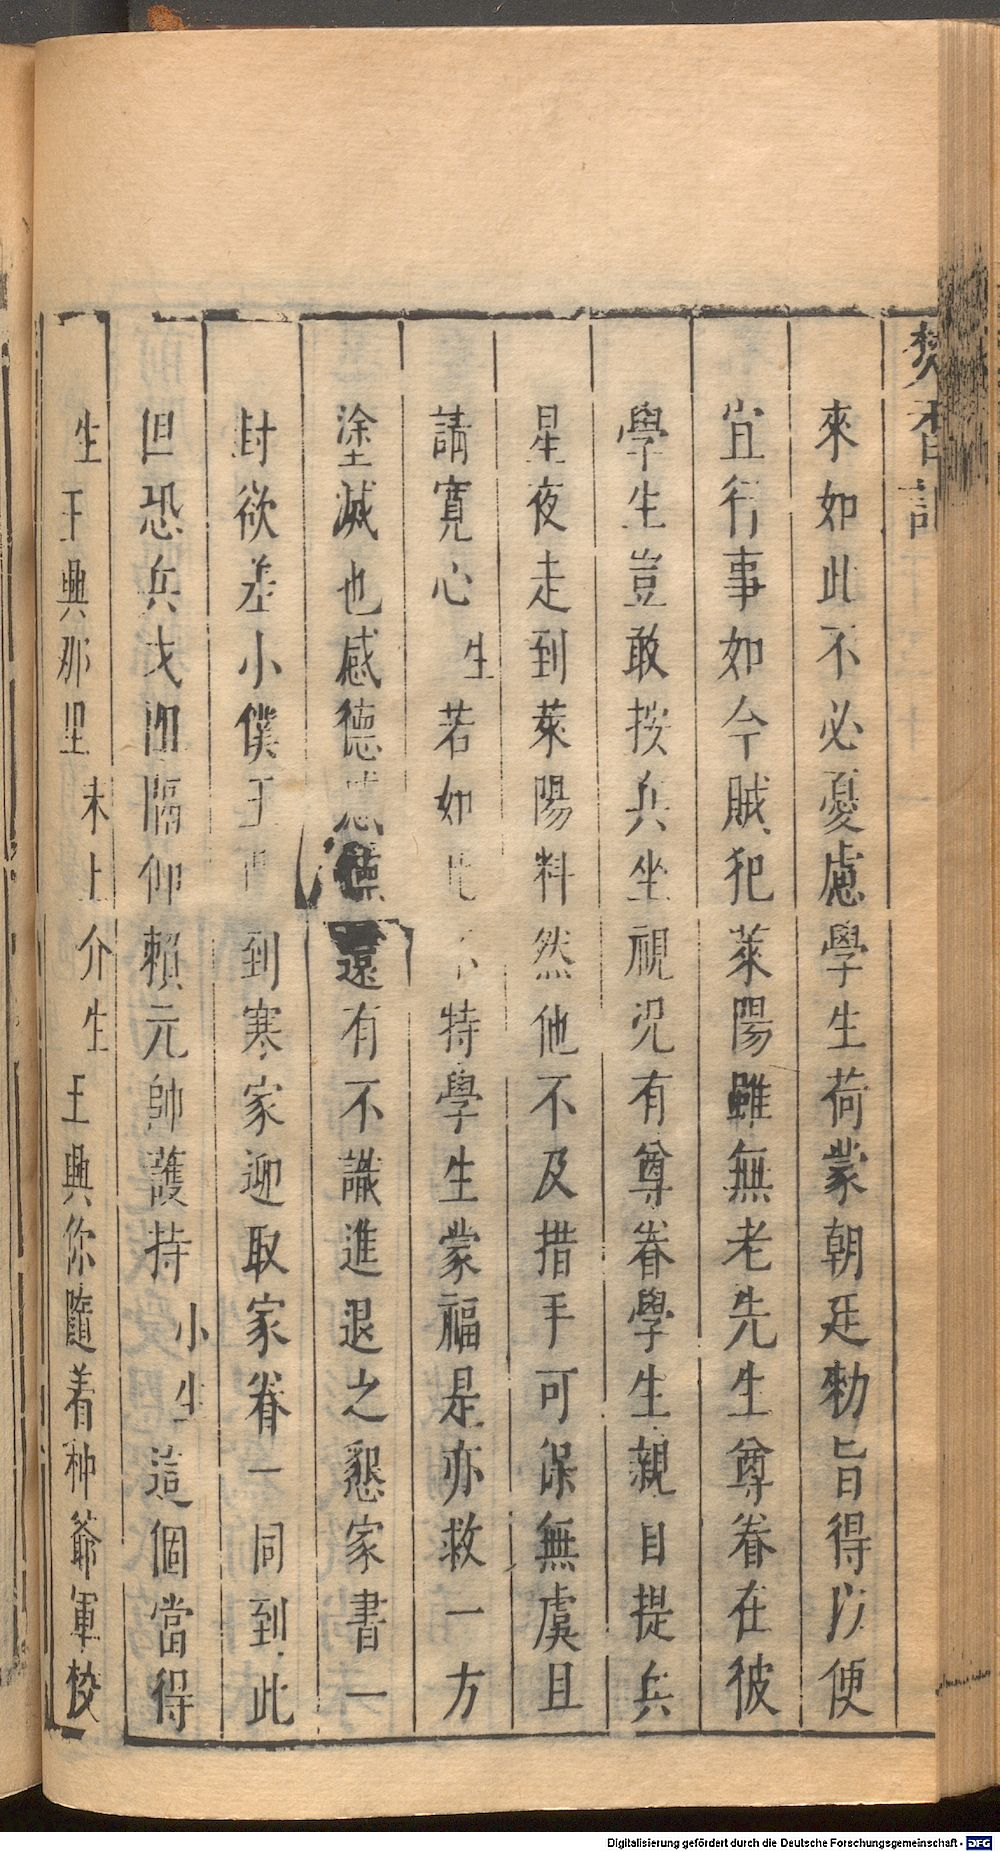 焚香記
來如此不必憂慮學生荷蒙朝廷勑旨得以便
宜行事如今賊犯萊陽雖無老先生尊眷在彼
學生豈敢按兵坐視況有尊眷學生親自提兵
星夜走到萊陽料然他不及措手可保無虞且
請寬心 生 若如此 特學生蒙福是亦救一方
塗滅也感德感德還有不識進退之懇家書一
封欲差小僕王 到寒家迎取家眷一同到此
但恐兵戈阻隔仰賴元帥護持 小生 這個當得
生 王興那里 末上介 生 王興你隨着种爺軍校
Digitalisierung gefördert durch die Deutsche Forschungsgemeinschaft - DFG